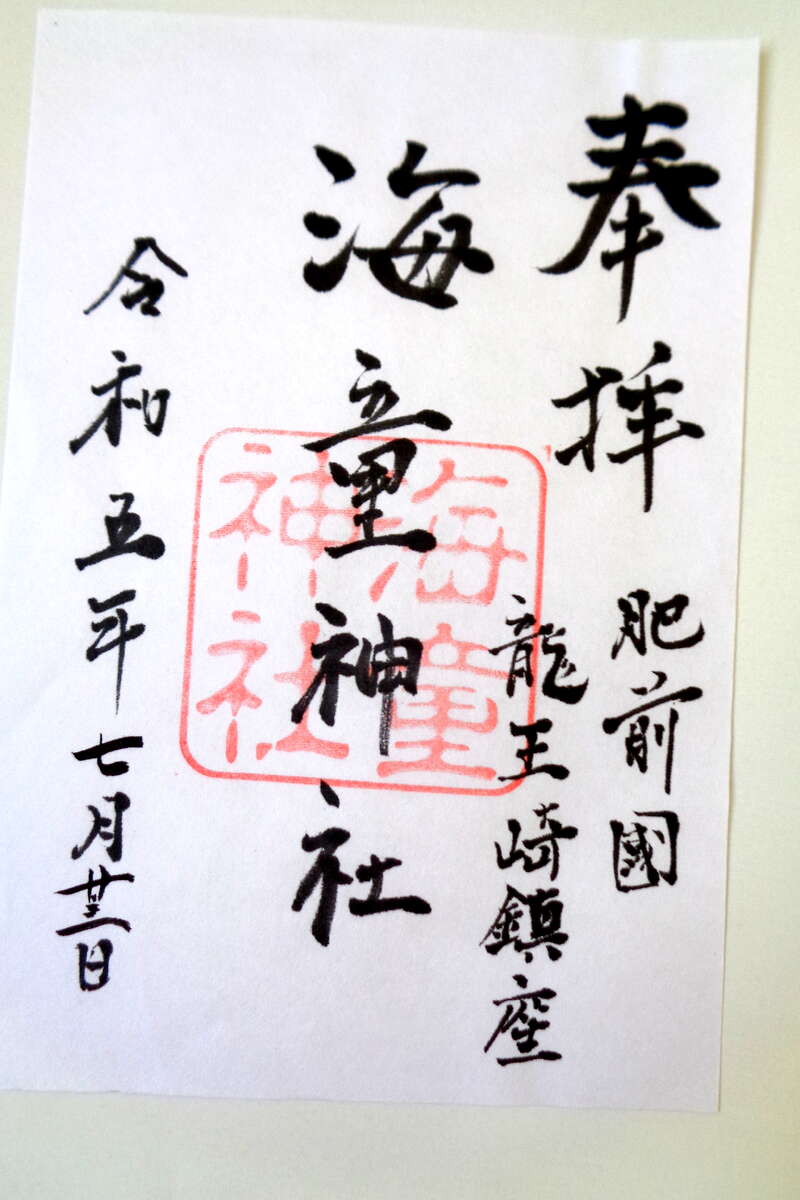 奉拝
肥前國
龍王崎鎮座
海童神社
海童
神社
令和五年七月廿三日